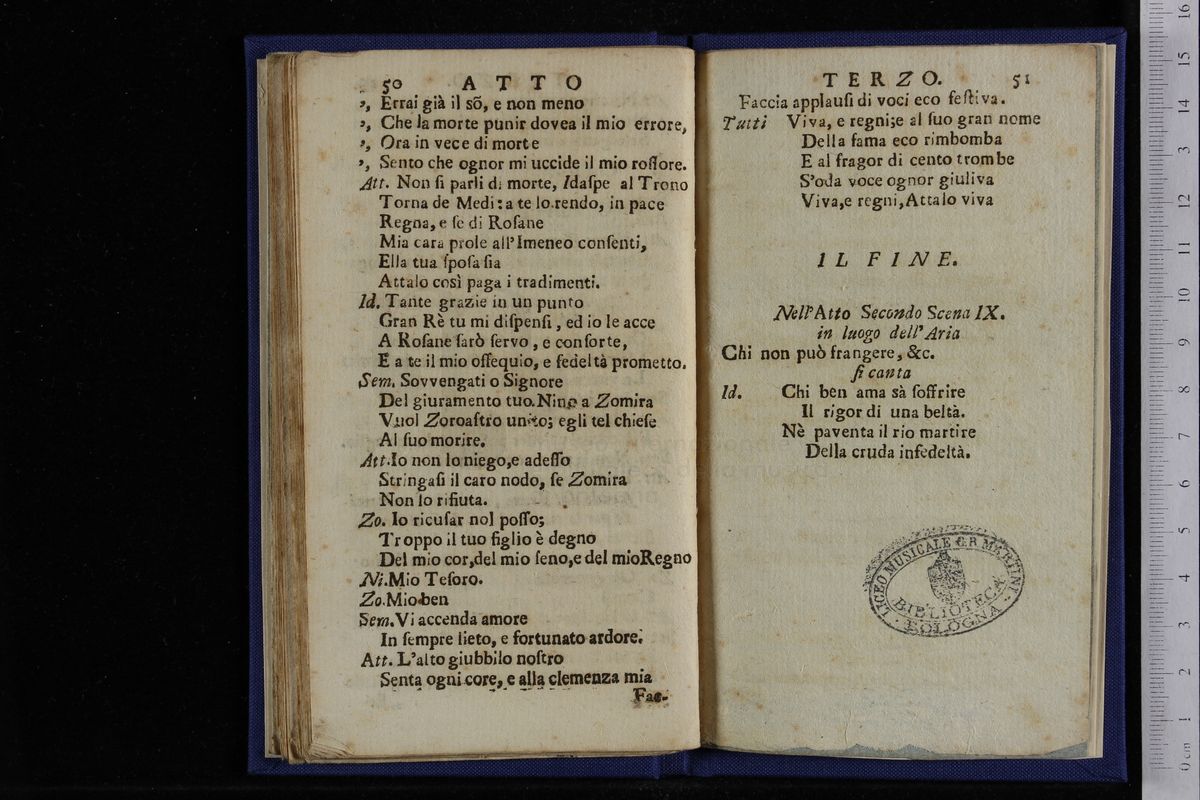 50 ATTO
„ Errai già il sõ, e non meno
„ Che la morte punir dovea il mio errore,
„ Ora in vece di morte
„ Sento che ognor mi uccide il mio roſſore.
Att. Non ſi parli di morte, Idaſpe al Trono
Torna de Medi: a te lo rendo, in pace
Regna, e ſe di Roſane
Mia cara prole all'Imeneo conſenti,
Ella tua ſpoſa ſia
Attalo così paga i tradimenti.
Id. Tante grazie in un punto
Gran Rè tu mi diſpenſi, ed io le acce
A Roſane ſarò ſervo, e conſorte,
E a te il mio oſſequio, e fedeltà prometto.
Sem. Sovvengati o Signore
Del giuramento tuo. Nino a Zomira
Vuol Zoroaſtro unito; egli tel chieſe
Al ſuo morire.
Att. Io non lo niego, e adeſſo
Stringaſi il caro nodo, ſe Zomira
Non lo rifiuta.
Zo. Io ricuſar nol poſſo;
Troppo il tuo figlio è degno
Del mio cor, del mio ſeno, e del mio Regno
Ni. Mio Teſoro.
Zo. Mio ben
Sem. Vi accenda amore
In ſempre lieto, e fortunato ardore.
Att. L'alto giubbilo noſtro
Senta ogni core, e alla clemenza mia
Fac-
TERZO. 51
Faccia applauſi di voci eco feſtiva.
Tutti Viva, e regni; e al ſuo gran nome
Della fama eco rimbomba
E al fragor di cento trombe
S'oda voce ognor giuliva
Viva, e regni, Attalo viva
IL FINE.
Nell' Atto Secondo Scena IX.
in luogo dell' Aria
Chi non può frangere, &c.
ſi canta
Id. Chi ben ama sà ſoffrire
Il rigor di una beltà.
Nè paventa il rio martire
Della cruda infedeltà.
LICEO MUSICALE G. B. MARTINI
BIBLIOTECA
BOLOGNA
0 cm 1 2 3 4 5 6 7 8 9 10 11 12 13 14 15 16